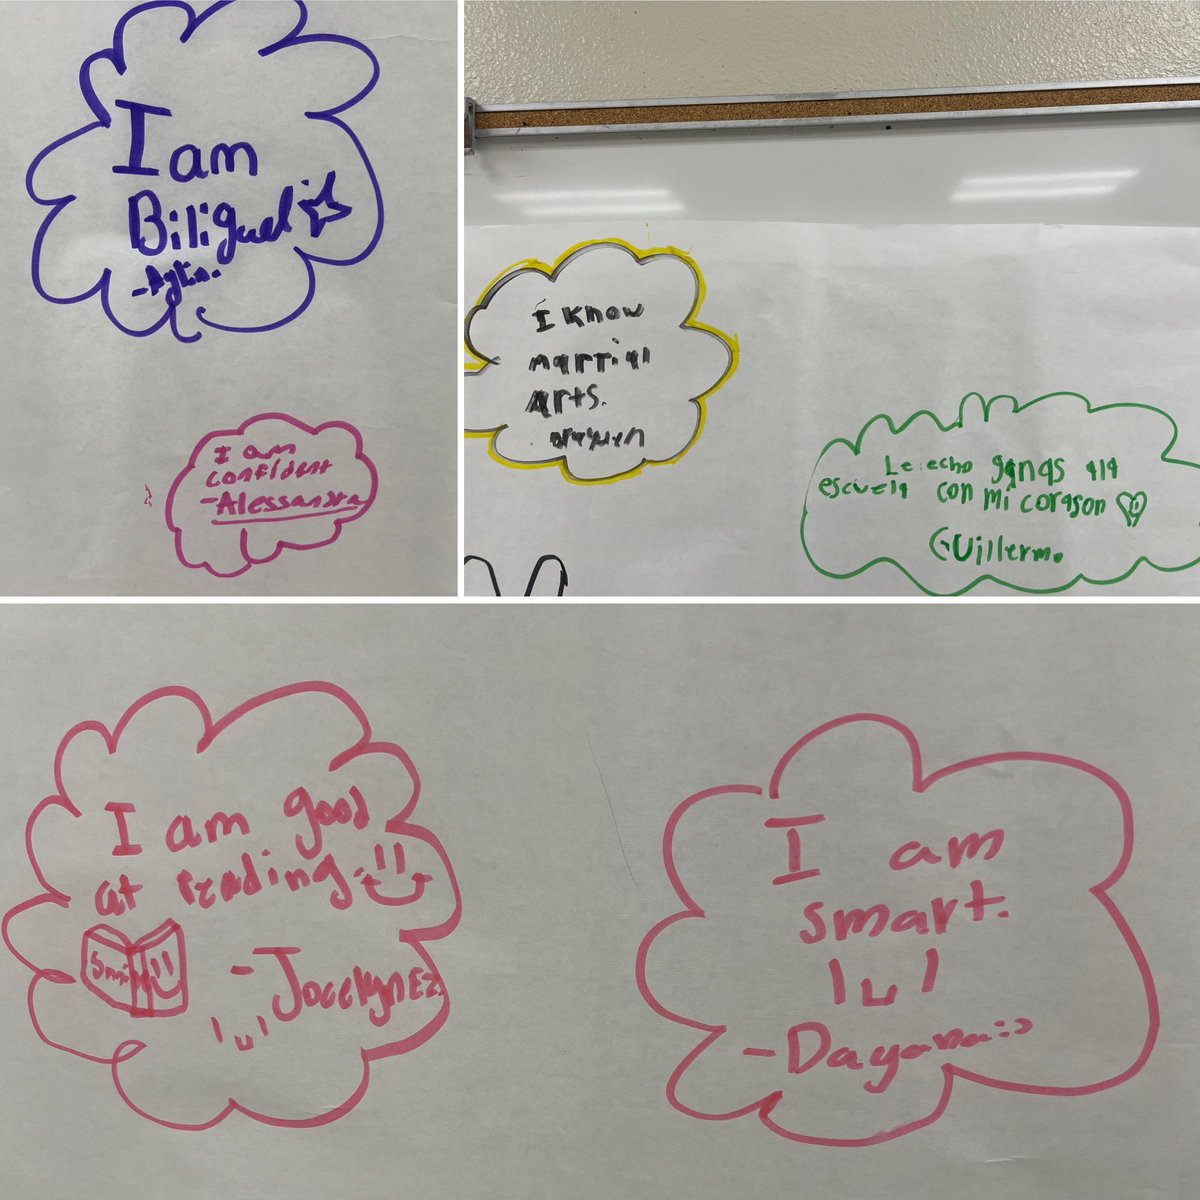 I am
Biligual
I am
confident
-Alessandra
I know
martial
arts.
Le echo ganas a la
escuela con mi corason
Guillermo
I am good
at reading.
-Jocelyn EZ.
I am
smart.
-Dayana :)